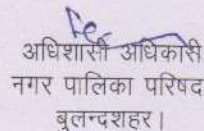 अधिशासी अधिकारी
नगर पालिका परिषद
बुलन्दशहर।